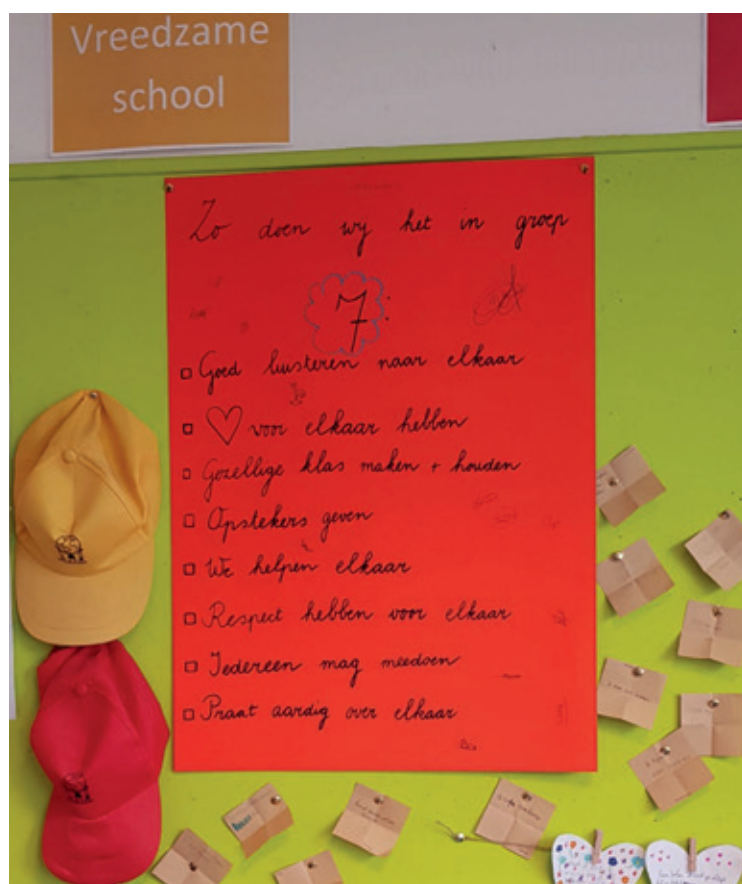 Vreedzame
school
Zo doen wij het in groep
7:
Goed luisteren naar elkaar
♡ voor elkaar hebben
Gezellige klas maken + houden
Opstekers geven
We helpen elkaar
Respect hebben voor elkaar
Iedereen mag meedoen
Praat aardig over elkaar